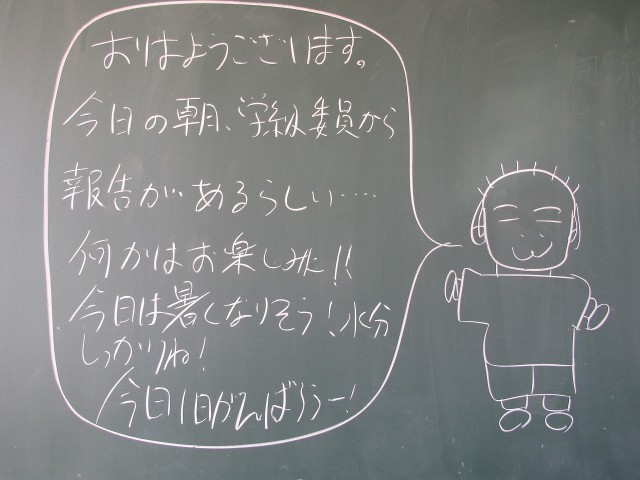 おはようございます。
今日の朝、学級委員から
報告があるらしい‥‥
何かはお楽しみに!!
今日は暑くなりそう!水分
しっかりね!
今日1日がんばろうー!